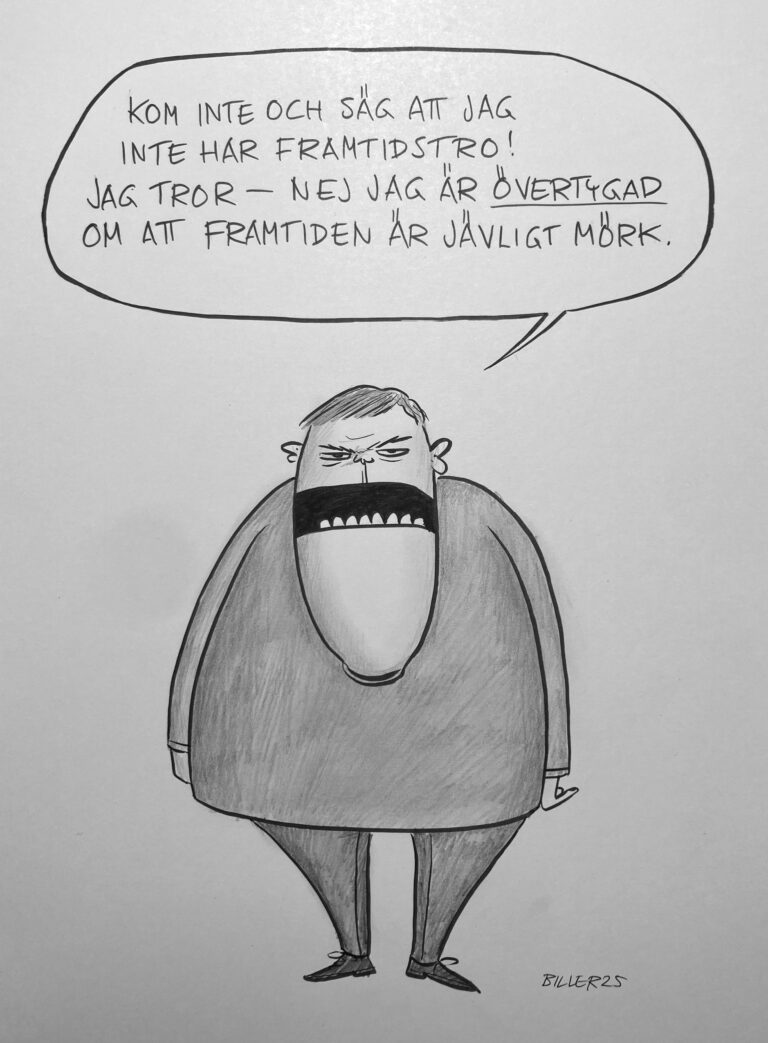 KOM INTE OCH SÄG ATT JAG
INTE HAR FRAMTIDSTRO!
JAG TROR – NEJ JAG ÄR ÖVERTYGAD
OM ATT FRAMTIDEN ÄR JÄVLIGT MÖRK.
BILLER25